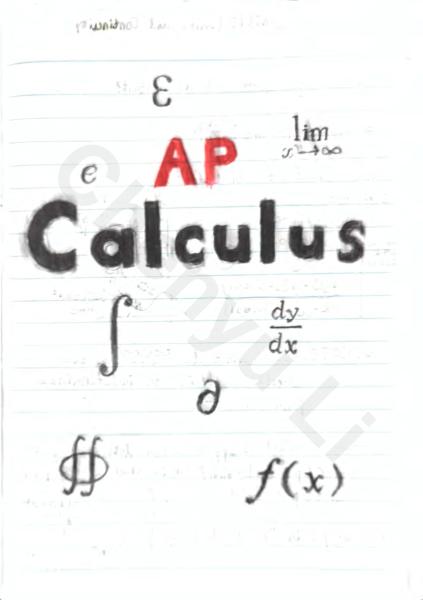 ε
AP
lim
x→∞
e
Calculus
∫
dy
dx
∂
∯
f(x)
Chenyu Li